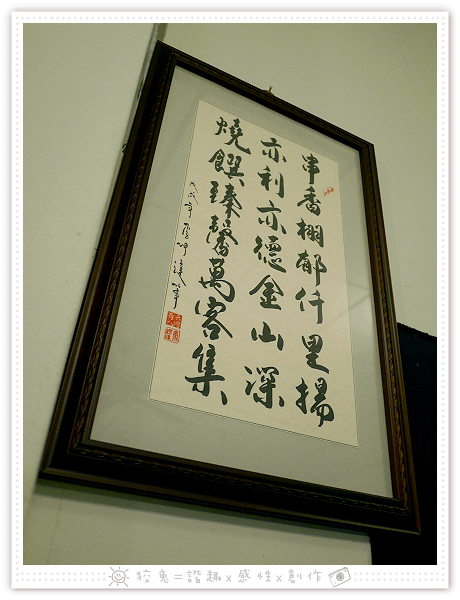 串香棚郁仟里揚
亦利亦德金山深
燒饌臻馨萬客集
戊戌年
狡兔=諧趣x感性x創作